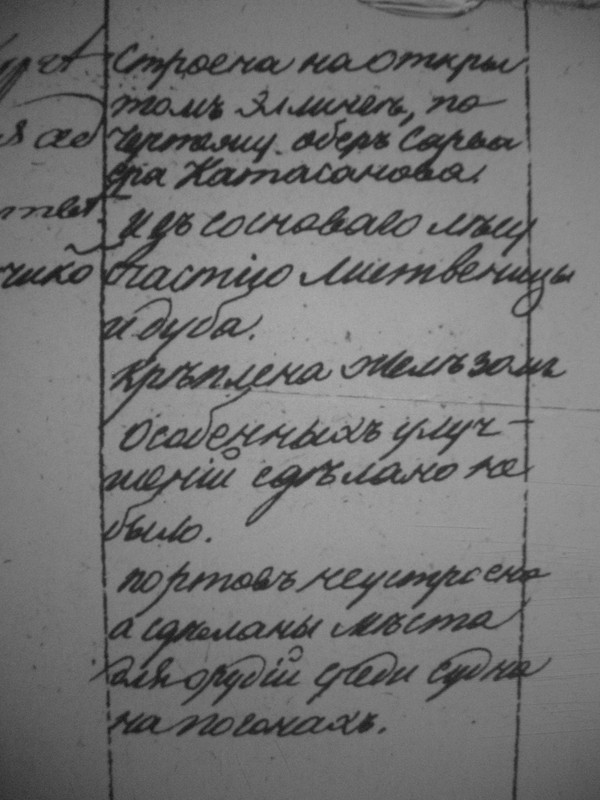 строена на откры
томъ Эллингъ, по
чертежу оберъ Сарва
ера Катасанова.
изъ сосноваго лѣсу
счастію лиственицы
чико
и дуба.
крѣплена желѣзомъ
особенныхъ улуч-
шеній сдѣлано не
было.
портовъ неустроено
а сдѣланы мѣста
для орудій среди судна
на погонахъ.